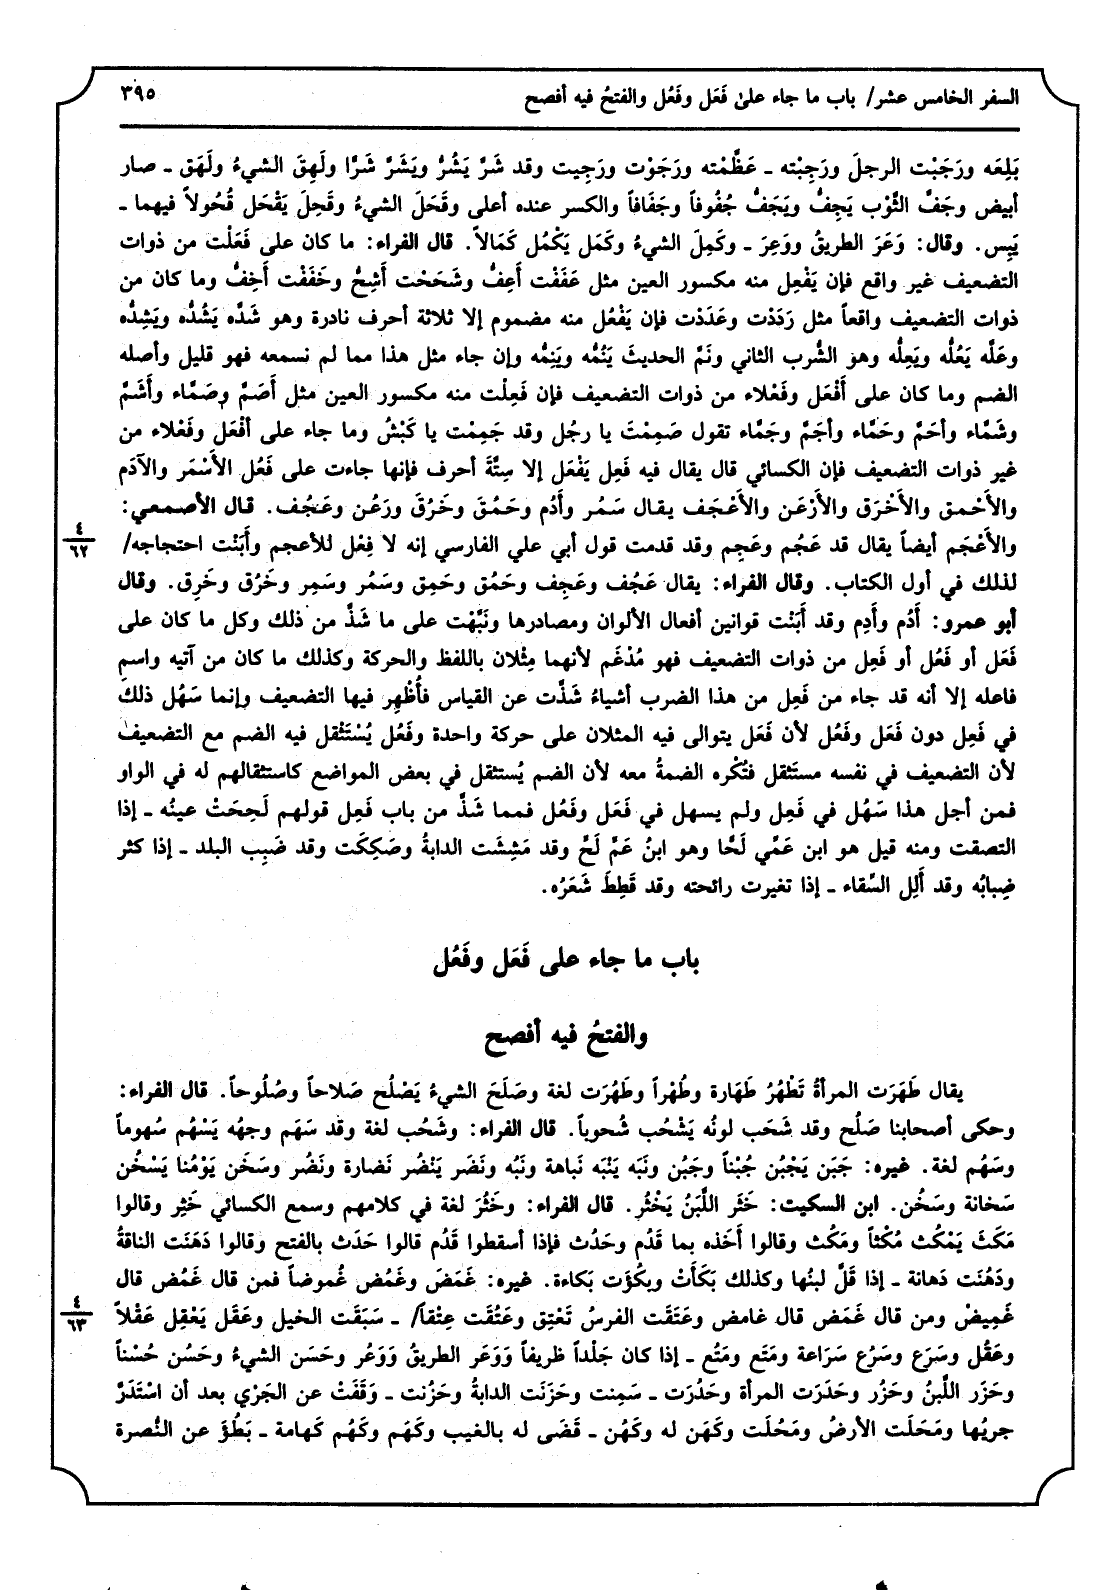 السفر الخامس عشر/ باب ما جاء على فَعَل وفَعُل والفتحُ فيه أفصح
٣٩٥
يَلِعَه ورَجَبْت الرجلَ ورَجِبْته ـ عَظَّمْته ورَجَوْت ورَجِيت وقد شَرَّ يَشُرُّ ويَشَرَّ شَرًّا ولَهِقَ الشيءُ ولَهَق ـ صار
أبيض وجَفَّ الثَّوْب يَجِفُّ ويَجَفُّ جُفُوفاً وجَفَافاً والكسر عنده أعلى وقَحَلَ الشيءُ وقَحِلَ يَقْحَل قُحُولاً فيهما ـ
يَبِس. وقال: وَعَرَ الطريقُ ووَعِرَ ـ وكَمِلَ الشيءُ وكَمَل يَكْمُل كَمَالاً. قال الفراء: ما كان على فَعَلْت من ذوات
التضعيف غير واقع فإن يَفْعِل منه مكسور العين مثل عَفَفْت أَعِفُّ وشَحَحْت أَشِحُّ وخَفَفْت أَخِفُّ وما كان من
ذوات التضعيف واقعاً مثل رَدَدْت وعَدَدْت فإن يَفْعُل منه مضموم إلا ثلاثة أحرف نادرة وهو شَدَّه يَشُدُّه ويَشِدُّه
وعَلَّه يَعُلُّه ويَعِلُّه وهو الشُّرب الثاني ونَمَّ الحديثَ يَنُمُّه ويَنِمُّه وإن جاء مثل هذا مما لم نسمعه فهو قليل وأصله
الضم وما كان على أَفْعَل وفَعْلاء من ذوات التضعيف فإن فَعِلْت منه مكسور العين مثل أَصَمَّ وصَمَّاء وأَشَمَّ
وشَمَّاء وأحَمَّ وحَمَّاء وأجَمَّ وجَمَّاء تقول صَمِمْتَ يا رجُل وقد جَمِمْت يا كَبْشُ وما جاء على أفْعَل وفَعْلاء من
غير ذوات التضعيف فإن الكسائي قال يقال فيه فَعِل يَفْعَل إلا سِتَّةَ أحرف فإنها جاءت على فَعُل الأَسْمَر والآدَم
والأَحْمق والأَخْرَق والأَرْعَن والأَعْجَف يقال سَمُر وأَدُم وحَمُقَ وخَرُقَ ورَعُن وعَجُف. قال الأصمعي:
والأَعْجَم أيضاً يقال قد عَجُم وعَجِم وقد قدمت قول أبي علي الفارسي إنه لا فِعْل للأعجم وأَبَنْت احتجاجه/
٤
٦٢
لذلك في أول الكتاب. وقال الفراء: يقال عَجُف وعَجِف وحَمُق وحَمِق وسَمُر وسَمِر وخَرُق وخَرِق. وقال
أبو عمرو: أَدُم وأَدِم وقد أَبَنْت قوانين أفعال الألوان ومصادرها ونَبَّهْت على ما شَذَّ من ذلك وكل ما كان على
فَعَل أو فَعُل أو فَعِل من ذوات التضعيف فهو مُدْغَم لأنهما مِثْلان باللفظ والحركة وكذلك ما كان من آتيه واسمِ
فاعله إلا أنه قد جاء من فَعِل من هذا الضرب أشياءُ شَذَّت عن القياس فأُظْهِر فيها التضعيف وإنما سَهُل ذلك
في فَعِل دون فَعَل وفَعُل لأن فَعَل يتوالى فيه المثلان على حركة واحدة وفَعُل يُسْتَثْقل فيه الضم مع التضعيف
لأن التضعيف في نفسه مستَثقل فتُكْره الضمةُ معه لأن الضم يُستثقل في بعض المواضع كاستثقالهم له في الواو
فمن أجل هذا سَهُل في فَعِل ولم يسهل في فَعَل وفَعُل فمما شَذَّ من باب فَعِل قولهم لَحِحَتْ عينُه ـ إذا
التصقت ومنه قيل هو ابن عَمِّي لَحًّا وهو ابنُ عَمَّ لَحَّ وقد مَشِشَت الدابةُ وصَكِكَت وقد ضَبِب البلد ـ إذا كثر
ضِبابُه وقد أَلِل السِّقاء ـ إذا تغيرت رائحته وقد قَطِطَ شَعَرُه.
باب ما جاء على فَعَل وفَعُل
والفتحُ فيه أفصح
يقال طَهَرَت المرأةُ تَطْهُرُ طَهَارة وطُهْراً وطَهُرَت لغة وصَلَحَ الشيءُ يَصْلُح صَلاحاً وصُلُوحاً. قال الفراء:
وحكى أصحابنا صَلُح وقد شَحَب لونُه يَشْحُب شُحوباً. قال الفراء: وشَحُب لغة وقد سَهَم وجهُه يَسْهُم سُهوماً
وسَهُم لغة. غيره: جَبَن يَجْبُن جُبْناً وجَبُن ونَبَه يَنْبَه نَباهة ونَبُه ونَضَر يَنْضُر نَضارة ونَضُر وسَخَن يَوْمُنا يَسْخُن
سَخانة وسَخُن. ابن السكيت: خَثَر اللَّبَنُ يَخْثُر. قال الفراء: وخَثُرَ لغة في كلامهم وسمع الكسائي خَثِر وقالوا
مَكَثَ يَمْكُث مُكْثاً ومَكُث وقالوا أَخَذه بما قَدُم وحَدُث فإذا أسقطوا قَدُم قالوا حَدَث بالفتح وقالوا دَهَنَت الناقةُ
ودَهُنَت دَهانة ـ إذا قَلَّ لبنُها وكذلك بَكَأَتْ وبكُؤَت بَكاءة. غيره: غَمَضَ وغَمُض غُموضاً فمن قال غَمُض قال
غَمِيضٌ ومن قال غَمَض قال غامض وعَتَقَت الفرسُ تَعْتِق وعَتُقَت عِتْقاً/ ـ سَبَقَت الخيل وعَقَل يَعْقِل عَقْلاً
٤
٦٣
وعَقُل وسَرَع وسَرُع سَرَاعة ومَتَع ومَتُع ـ إذا كان جَلْداً ظريفاً وَوَعَر الطريقُ وَوَعُر وحَسَن الشيءُ وحَسُن حُسْناً
وحَزَر اللَّبنُ وحَزُر وحَدَرَت المرأة وحَدُرَت ـ سَمِنت وحَرَنَت الدابةُ وحَرُنت ـ وَقَفَتْ عن الجَرْي بعد أن اسْتَدَرَّ
جريُها ومَحَلَت الأرضُ ومَحُلَت وكَهَن له وكَهُن ـ قَضَى له بالغيب وكَهَم وكَهُم كَهامة ـ بَطُؤَ عن النُّصرة